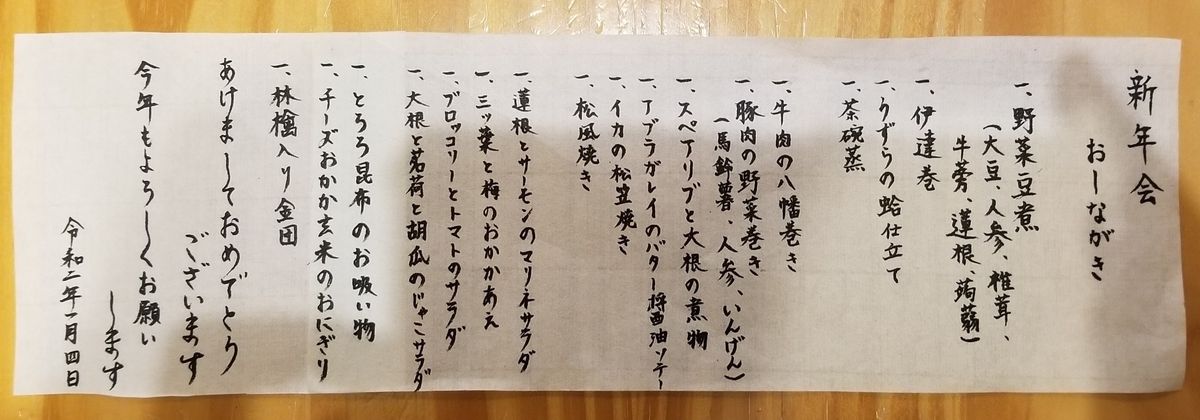 新年会
おしながき
一、野菜豆煮
（大豆、人参、椎茸、
牛蒡、蓮根、蒟蒻）
一、伊達巻
一、うずらの蛤仕立て
一、茶碗蒸
一、牛肉の八幡巻き
一、豚肉の野菜巻き
（馬鈴薯、人参、いんげん）
一、スペアリブと大根の煮物
一、アブラガレイのバター醤油ソテー
一、イカの松笠焼き
一、松風焼き
一、蓮根とサーモンのマリネサラダ
一、三ッ葉と梅のおかかあえ
一、ブロッコリーとトマトのサラダ
一、大根と茗荷と胡瓜のじゃこサラダ
一、とろろ昆布のお吸い物
一、チーズおかか玄米のおにぎり
一、林檎入り金団
あけましておめでとう
ございます
今年もよろしくお願い
します
令和二年一月四日